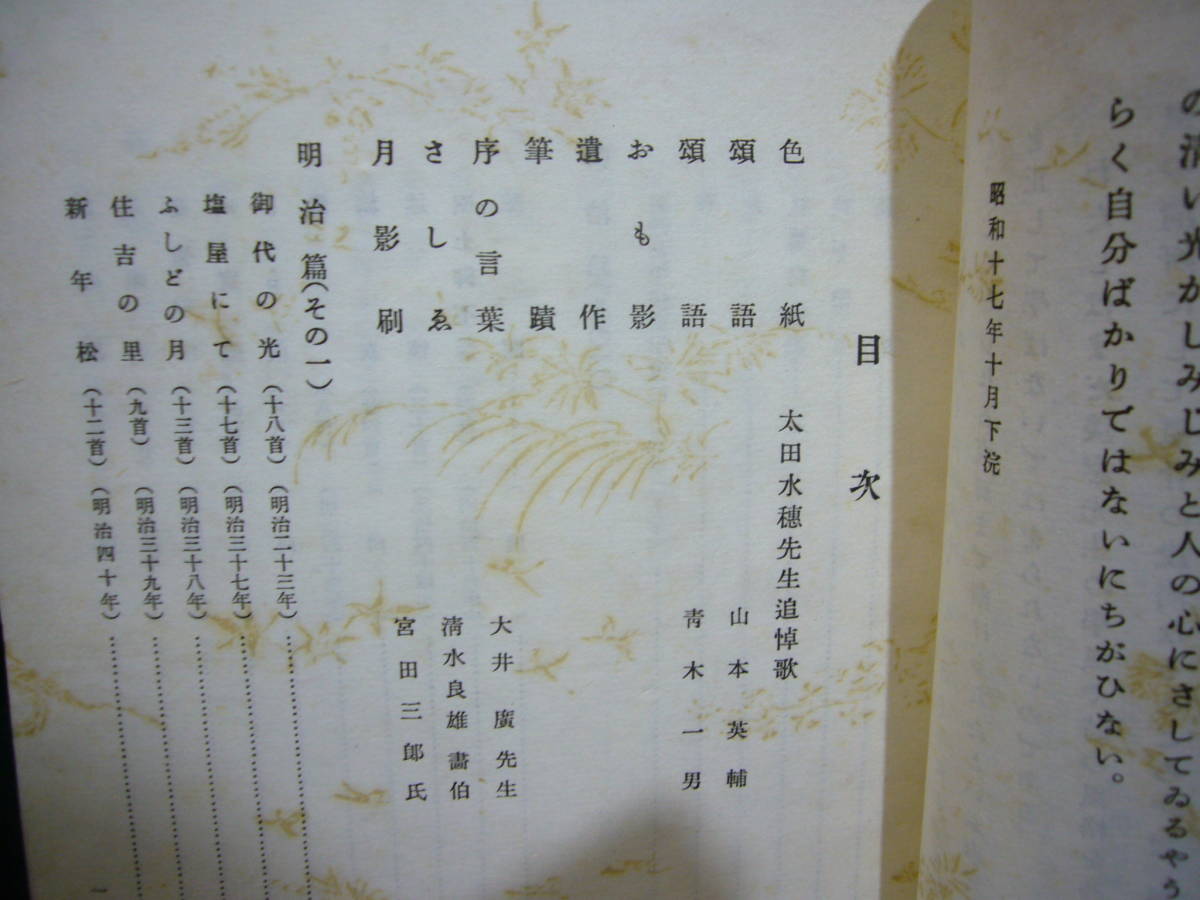 の清い光がしみじみと人の心にさしてゐるやう
らく自分ばかりではないにちがひない。
昭和十七年十月下浣
目次
色紙 太田水穂先生追悼歌
頌語 山本英輔
頌語 青木一男
おも影
遺作
筆蹟
序の言葉 大井廣先生
さしゑ 清水良雄畫伯
月影刷 宮田三郎氏
明治篇(その一)
御代の光(十八首)(明治二十三年)
塩屋にて(十七首)(明治三十七年)
ふしどの月(十三首)(明治三十八年)
住吉の里(九首)(明治三十九年)
新年松(十二首)(明治四十年)